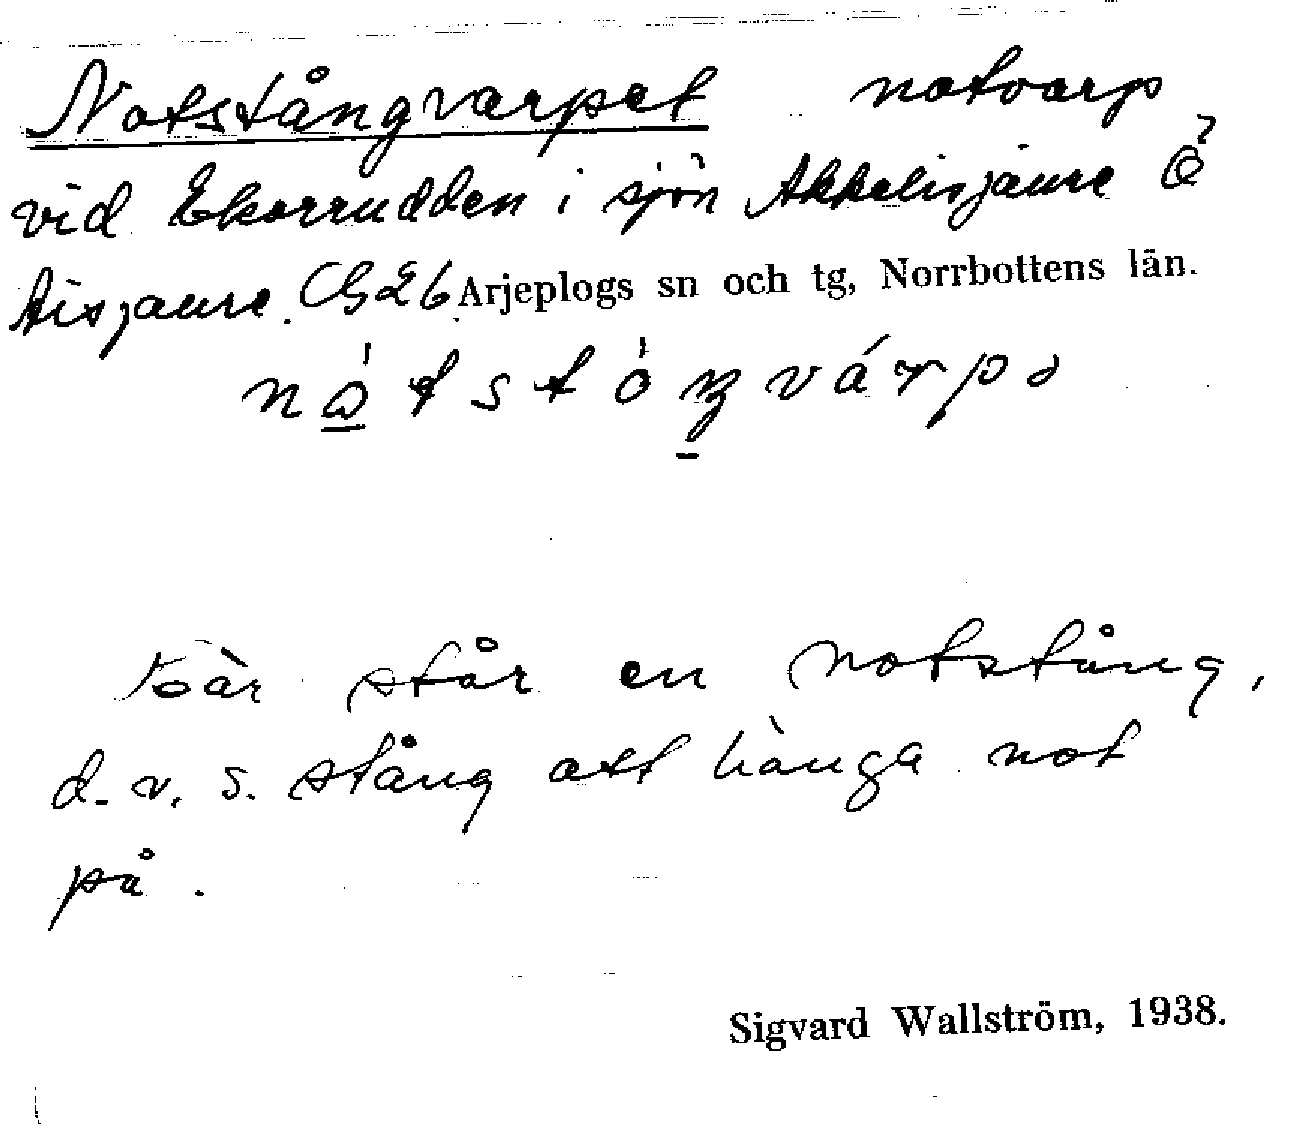 Notstångvarpet notvarp
vid Ekorrudden i sjön Akkelisjaure Ö
Aisjaure. CGZ6 Arjeplogs sn och tg, Norrbottens län.
Där står en notstång,
d. v. s. stång att hänga not
på.
Sigvard Wallström, 1938.